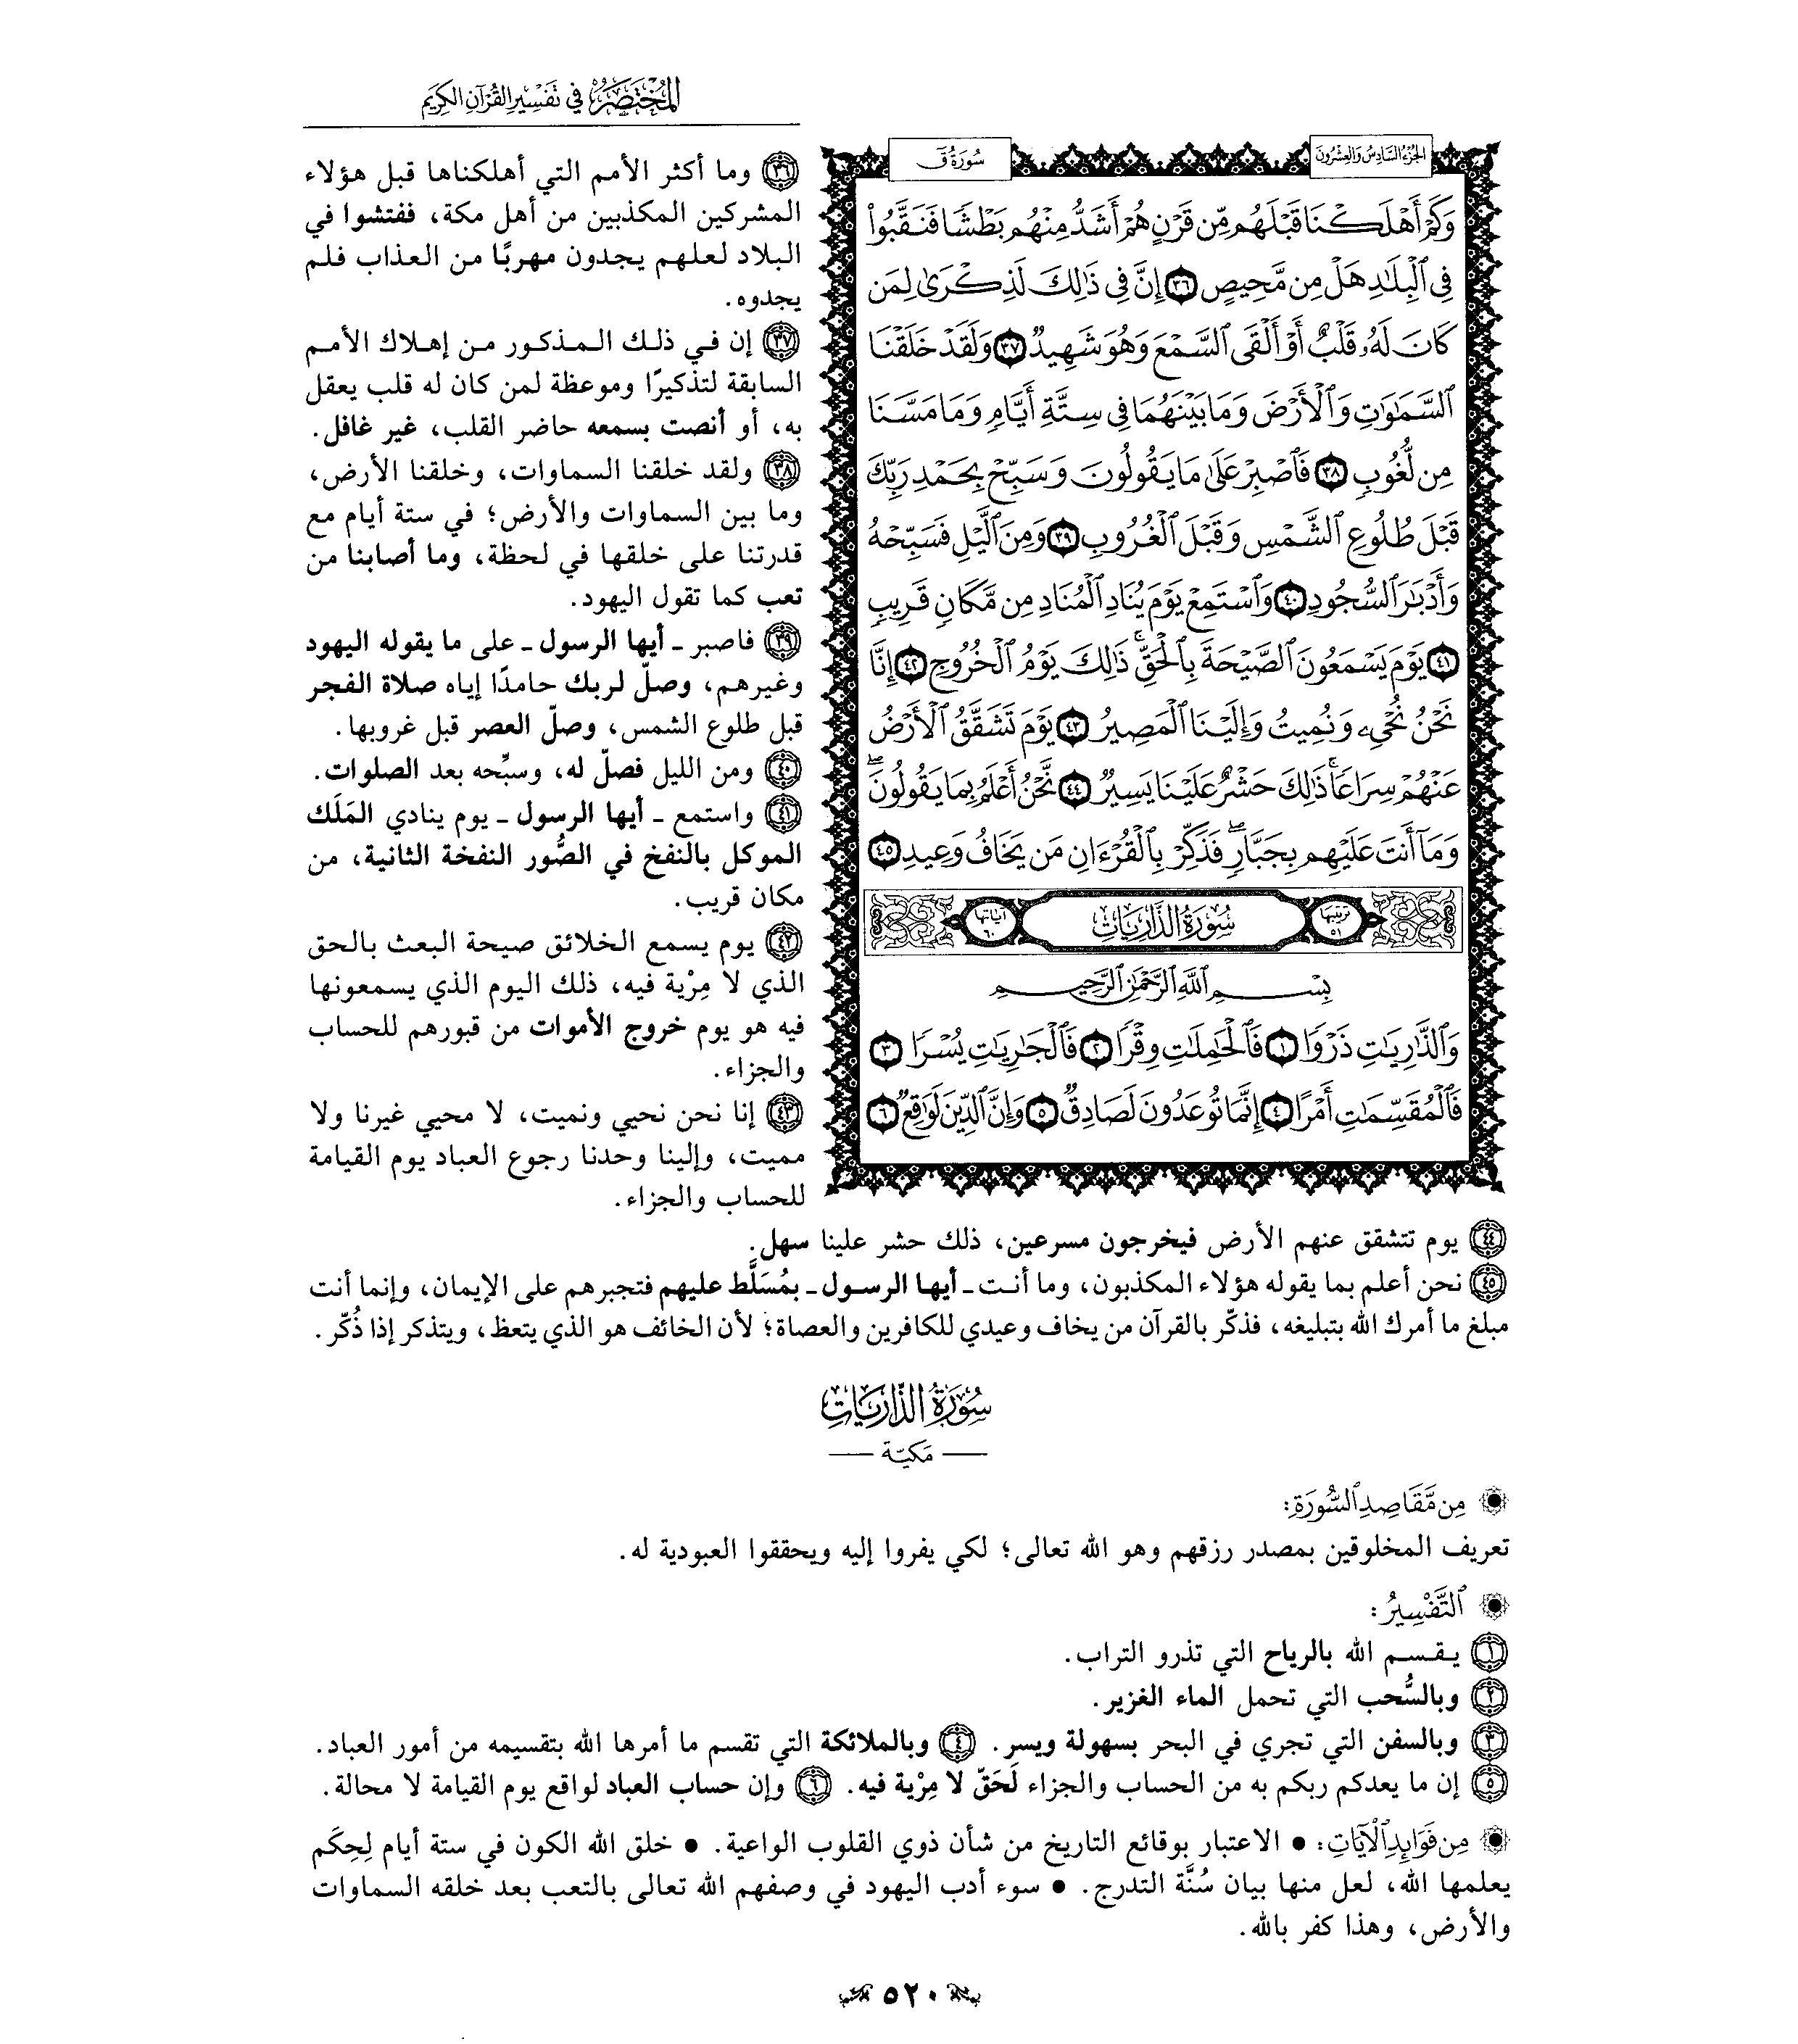 المختصر في تفسير القرآن الكريم
الجزء السادس والعشرون
سورة ق
وَكَمْ أَهْلَكْنَا قَبْلَهُم مِّن قَرْنٍ هُمْ أَشَدُّ مِنْهُم بَطْشًا فَنَقَّبُوا۟
فِى ٱلْبِلَٰدِ هَلْ مِن مَّحِيصٍ ٣٦ إِنَّ فِى ذَٰلِكَ لَذِكْرَىٰ لِمَن
كَانَ لَهُۥ قَلْبٌ أَوْ أَلْقَى ٱلسَّمْعَ وَهُوَ شَهِيدٌ ٣٧ وَلَقَدْ خَلَقْنَا
ٱلسَّمَٰوَٰتِ وَٱلْأَرْضَ وَمَا بَيْنَهُمَا فِى سِتَّةِ أَيَّامٍ وَمَا مَسَّنَا
مِن لُّغُوبٍ ٣٨ فَٱصْبِرْ عَلَىٰ مَا يَقُولُونَ وَسَبِّحْ بِحَمْدِ رَبِّكَ
قَبْلَ طُلُوعِ ٱلشَّمْسِ وَقَبْلَ ٱلْغُرُوبِ ٣٩ وَمِنَ ٱلَّيْلِ فَسَبِّحْهُ
وَأَدْبَٰرَ ٱلسُّجُودِ ٤٠ وَٱسْتَمِعْ يَوْمَ يُنَادِ ٱلْمُنَادِ مِن مَّكَانٍ قَرِيبٍ
٤١ يَوْمَ يَسْمَعُونَ ٱلصَّيْحَةَ بِٱلْحَقِّ ۚ ذَٰلِكَ يَوْمُ ٱلْخُرُوجِ ٤٢ إِنَّا
نَحْنُ نُحْىِۦ وَنُمِيتُ وَإِلَيْنَا ٱلْمَصِيرُ ٤٣ يَوْمَ تَشَقَّقُ ٱلْأَرْضُ
عَنْهُمْ سِرَاعًا ۚ ذَٰلِكَ حَشْرٌ عَلَيْنَا يَسِيرٌ ٤٤ نَّحْنُ أَعْلَمُ بِمَا يَقُولُونَ ۖ
وَمَآ أَنتَ عَلَيْهِم بِجَبَّارٍ ۖ فَذَكِّرْ بِٱلْقُرْءَانِ مَن يَخَافُ وَعِيدِ ٤٥
ترتيبها ٥١ سُورَةُ الذَّارِيَاتِ آياتها ٦٠
بِسْمِ ٱللَّهِ ٱلرَّحْمَٰنِ ٱلرَّحِيمِ
وَٱلذَّٰرِيَٰتِ ذَرْوًا ١ فَٱلْحَٰمِلَٰتِ وِقْرًا ٢ فَٱلْجَٰرِيَٰتِ يُسْرًا ٣
فَٱلْمُقَسِّمَٰتِ أَمْرًا ٤ إِنَّمَا تُوعَدُونَ لَصَادِقٌ ٥ وَإِنَّ ٱلدِّينَ لَوَٰقِعٌ ٦
٣٦ وما أكثر الأمم التي أهلكناها قبل هؤلاء
المشركين المكذبين من أهل مكة، ففتشوا في
البلاد لعلهم يجدون مهربًا من العذاب فلم
يجدوه.
٣٧ إن في ذلك المذكور من إهلاك الأمم
السابقة لتذكيرًا وموعظة لمن كان له قلب يعقل
به، أو أنصت بسمعه حاضر القلب، غير غافل.
٣٨ ولقد خلقنا السماوات، وخلقنا الأرض،
وما بين السماوات والأرض؛ في ستة أيام مع
قدرتنا على خلقها في لحظة، وما أصابنا من
تعب كما تقول اليهود.
٣٩ فاصبر ـ أيها الرسول ـ على ما يقوله اليهود
وغيرهم، وصلّ لربك حامدًا إياه صلاة الفجر
قبل طلوع الشمس، وصلّ العصر قبل غروبها.
٤٠ ومن الليل فصلّ له، وسبِّحه بعد الصلوات.
٤١ واستمع ـ أيها الرسول ـ يوم ينادي المَلَك
الموكل بالنفخ في الصُّور النفخة الثانية، من
مكان قريب.
٤٢ يوم يسمع الخلائق صيحة البعث بالحق
الذي لا مِرْية فيه، ذلك اليوم الذي يسمعونها
فيه هو يوم خروج الأموات من قبورهم للحساب
والجزاء.
٤٣ إنا نحن نحيي ونميت، لا محيي غيرنا ولا
مميت، وإلينا وحدنا رجوع العباد يوم القيامة
للحساب والجزاء.
٤٤ يوم تتشقق عنهم الأرض فيخرجون مسرعين، ذلك حشر علينا سهل.
٤٥ نحن أعلم بما يقوله هؤلاء المكذبون، وما أنت ـ أيها الرسول ـ بمُسَلَّط عليهم فتجبرهم على الإيمان، وإنما أنت
مبلغ ما أمرك الله بتبليغه، فذكّر بالقرآن من يخاف وعيدي للكافرين والعصاة؛ لأن الخائف هو الذي يتعظ، ويتذكر إذا ذُكّر.
سُورَةُ الذَّارِيَاتِ
— مَكيّة —
مِن مَّقَاصِدِ ٱلسُّورَةِ:
تعريف المخلوقين بمصدر رزقهم وهو الله تعالى؛ لكي يفروا إليه ويحققوا العبودية له.
ٱلتَّفْسِيرُ:
١ يقسم الله بالرياح التي تذرو التراب.
٢ وبالسُّحب التي تحمل الماء الغزير.
٣ وبالسفن التي تجري في البحر بسهولة ويسر. ٤ وبالملائكة التي تقسم ما أمرها الله بتقسيمه من أمور العباد.
٥ إن ما يعدكم ربكم به من الحساب والجزاء لَحَقّ لا مِرْية فيه. ٦ وإن حساب العباد لواقع يوم القيامة لا محالة.
مِن فَوَائِدِ ٱلْآيَاتِ: • الاعتبار بوقائع التاريخ من شأن ذوي القلوب الواعية. • خلق الله الكون في ستة أيام لِحِكَم
يعلمها الله، لعل منها بيان سُنَّة التدرج. • سوء أدب اليهود في وصفهم الله تعالى بالتعب بعد خلقه السماوات
والأرض، وهذا كفر بالله.
٥٢٠